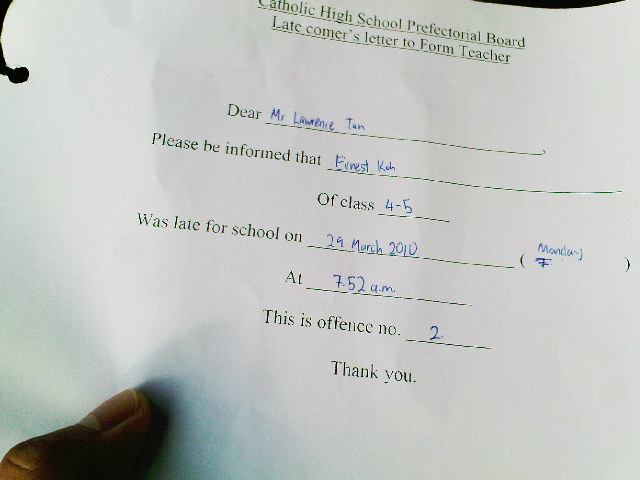 Catholic High School Prefectorial Board
Late comer's letter to Form Teacher
Dear Mr Lawrence Tan,
Please be informed that Ernest Koh
Of class 4-5
Was late for school on 29 March 2010 (Monday)
At 7.52 a.m.
This is offence no. 2
Thank you.